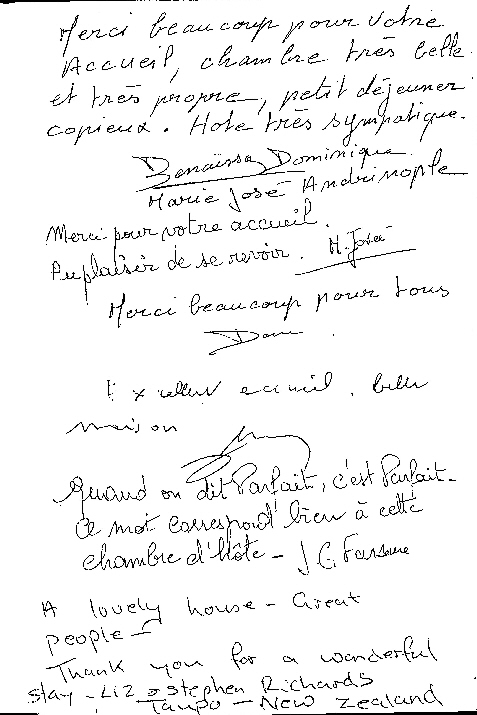 Merci beaucoup pour votre
Accueil, chambre très belle
et très propre, petit déjeuner
copieux. Hote très sympatique.
Dominique
Marie José Andrinople
Merci pour votre accueil.
Au plaisir de se revoir. M. José
Merci beaucoup pour tous
Dom
Excellent accueil, belle
maison
Quand on dit Parfait, c'est Parfait -
Ce mot correspond bien à cette
chambre d'hôte - J C
A lovely house - Great
people -
Thank you for a wonderful
stay - Liz & Stephen Richards
Taupo - New Zealand